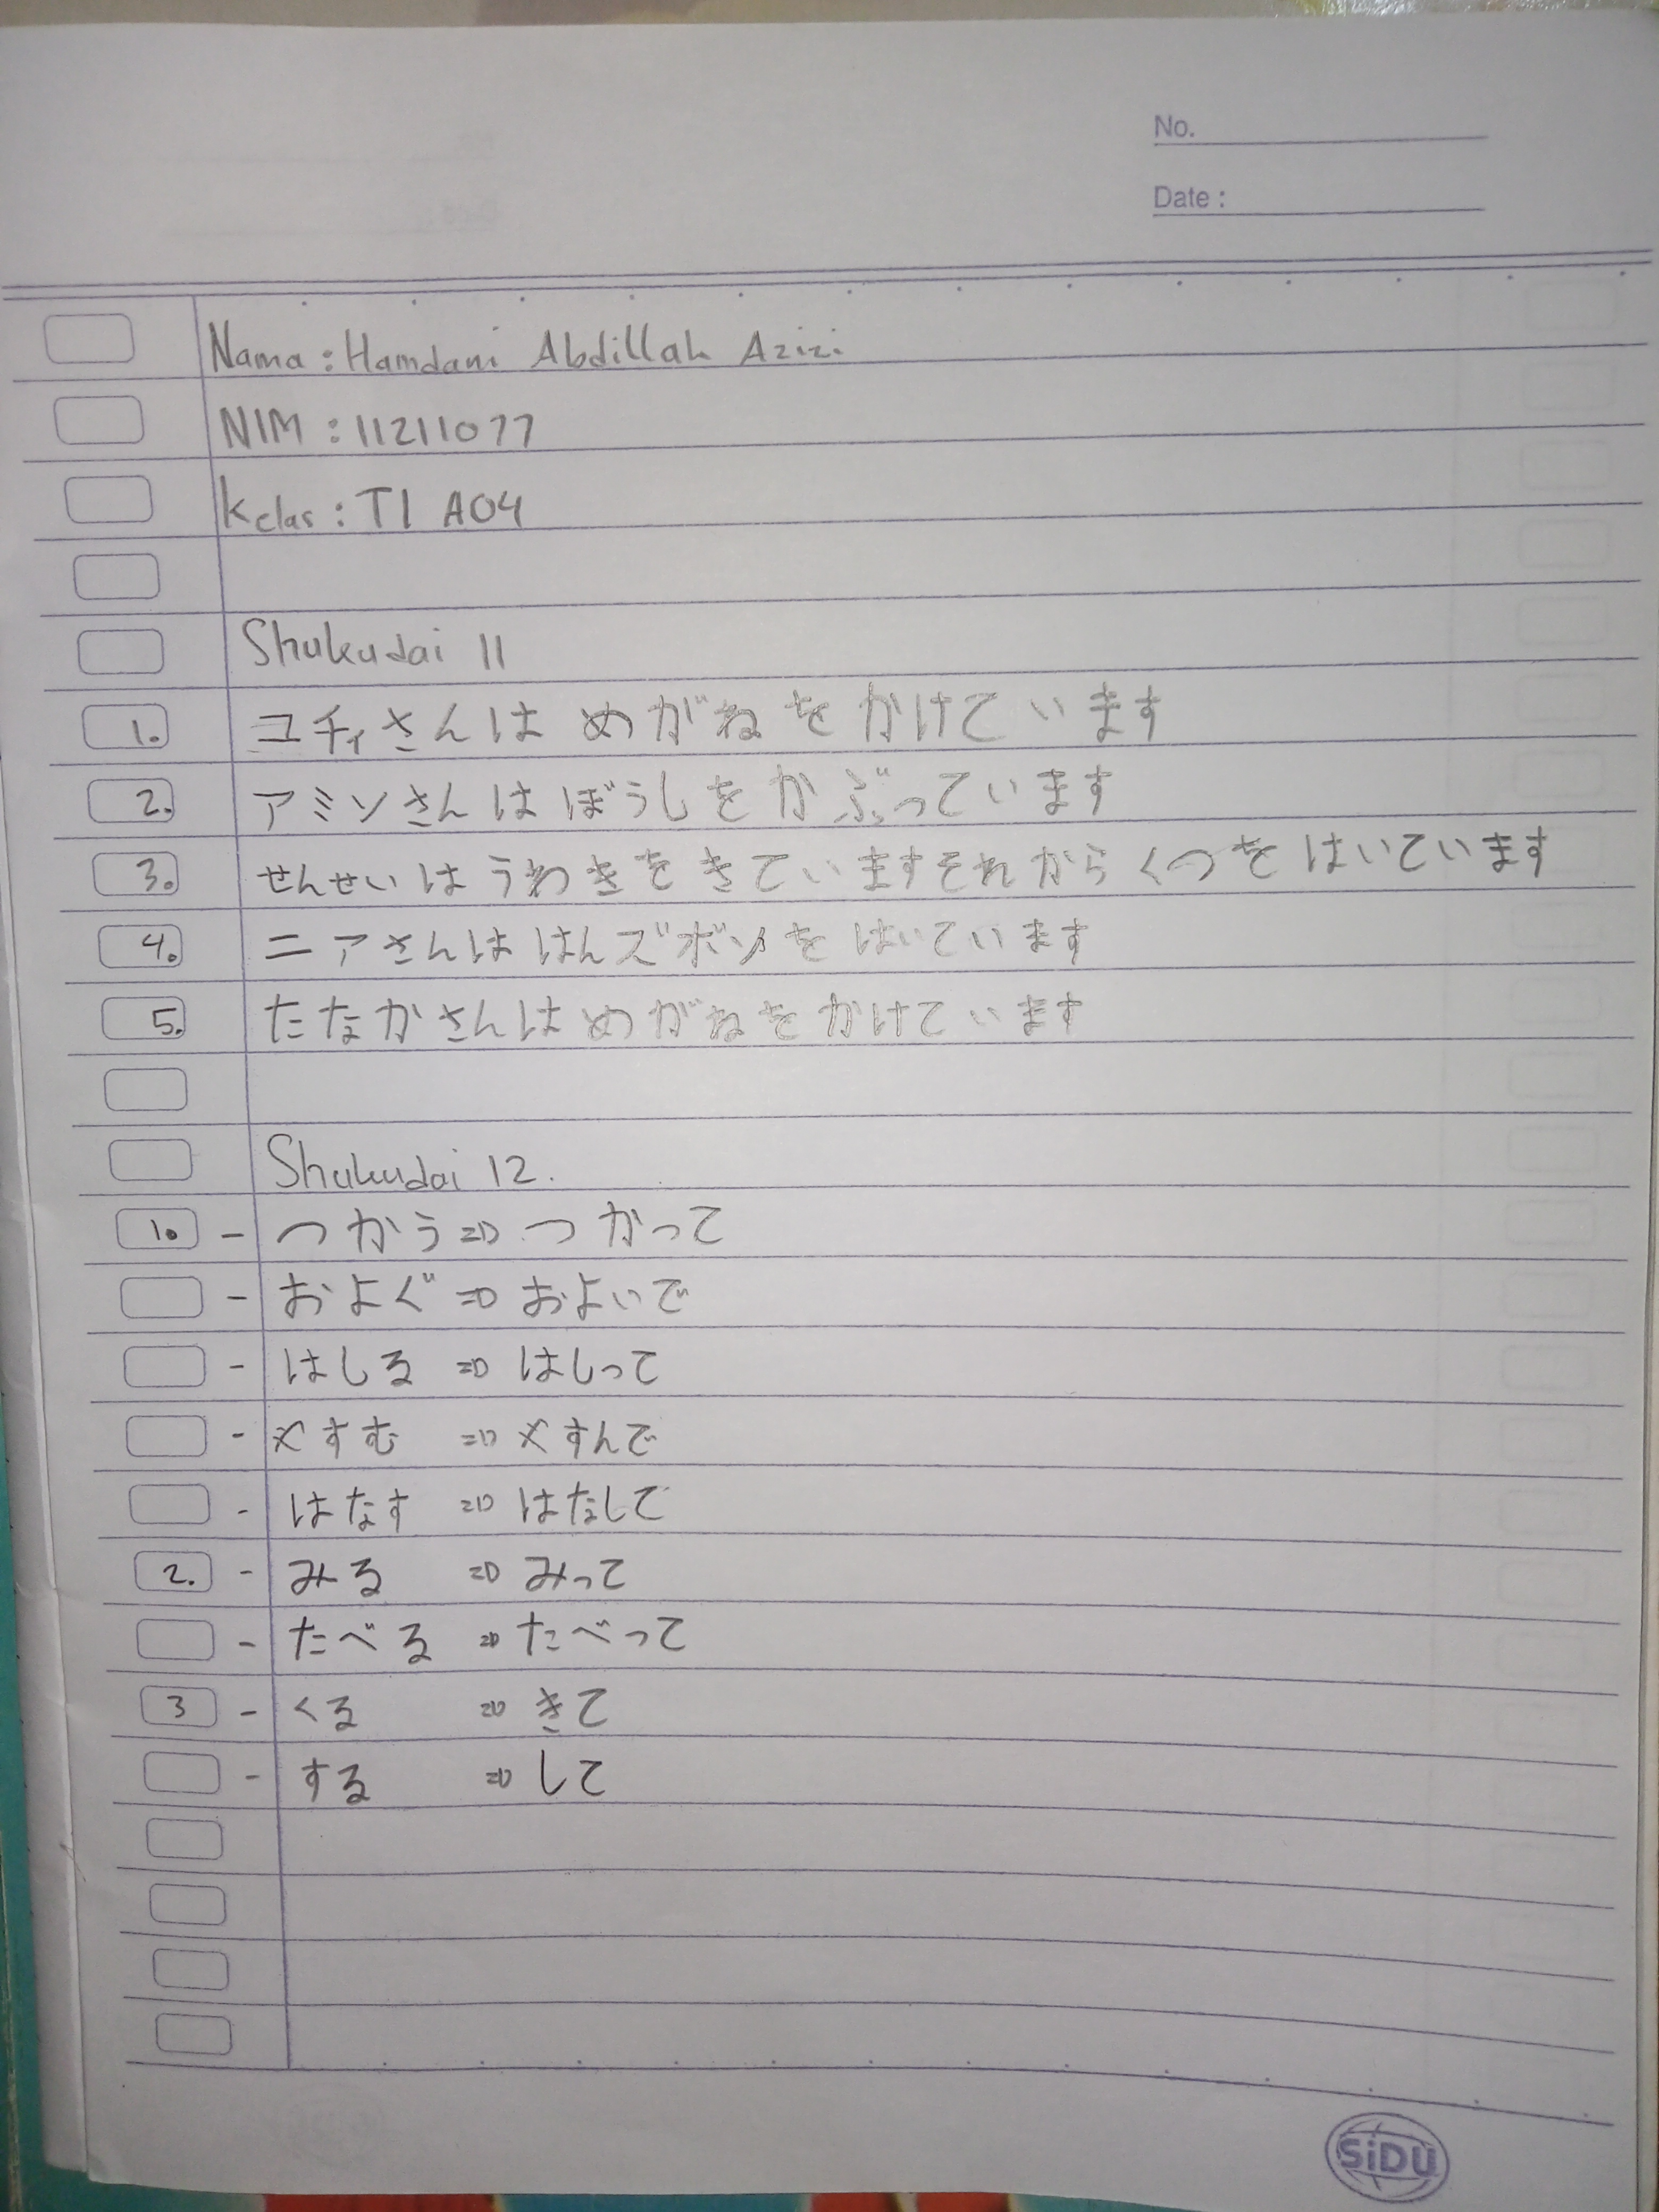 No.
Date :
Nama : Hamdani Abdillah Azizi
NIM : 11211077
Kelas : TI A04
Shukudai 11
1. ユチィさんは めがねを かけています
2. アミンさんは ぼうしを かぶっています
3. せんせいは うわきを きていますそれから くつを はいています
4. ニアさんは はんズボンを はいています
5. たなかさんは めがねを かけています
Shukudai 12.
1. - つかう ⇒ つかって
- およぐ ⇒ およいで
- はしる ⇒ はしって
- やすむ ⇒ やすんで
- はなす ⇒ はなして
2. - みる ⇒ みって
- たべる ⇒ たべって
3 - くる ⇒ きて
- する ⇒ して
SiDU